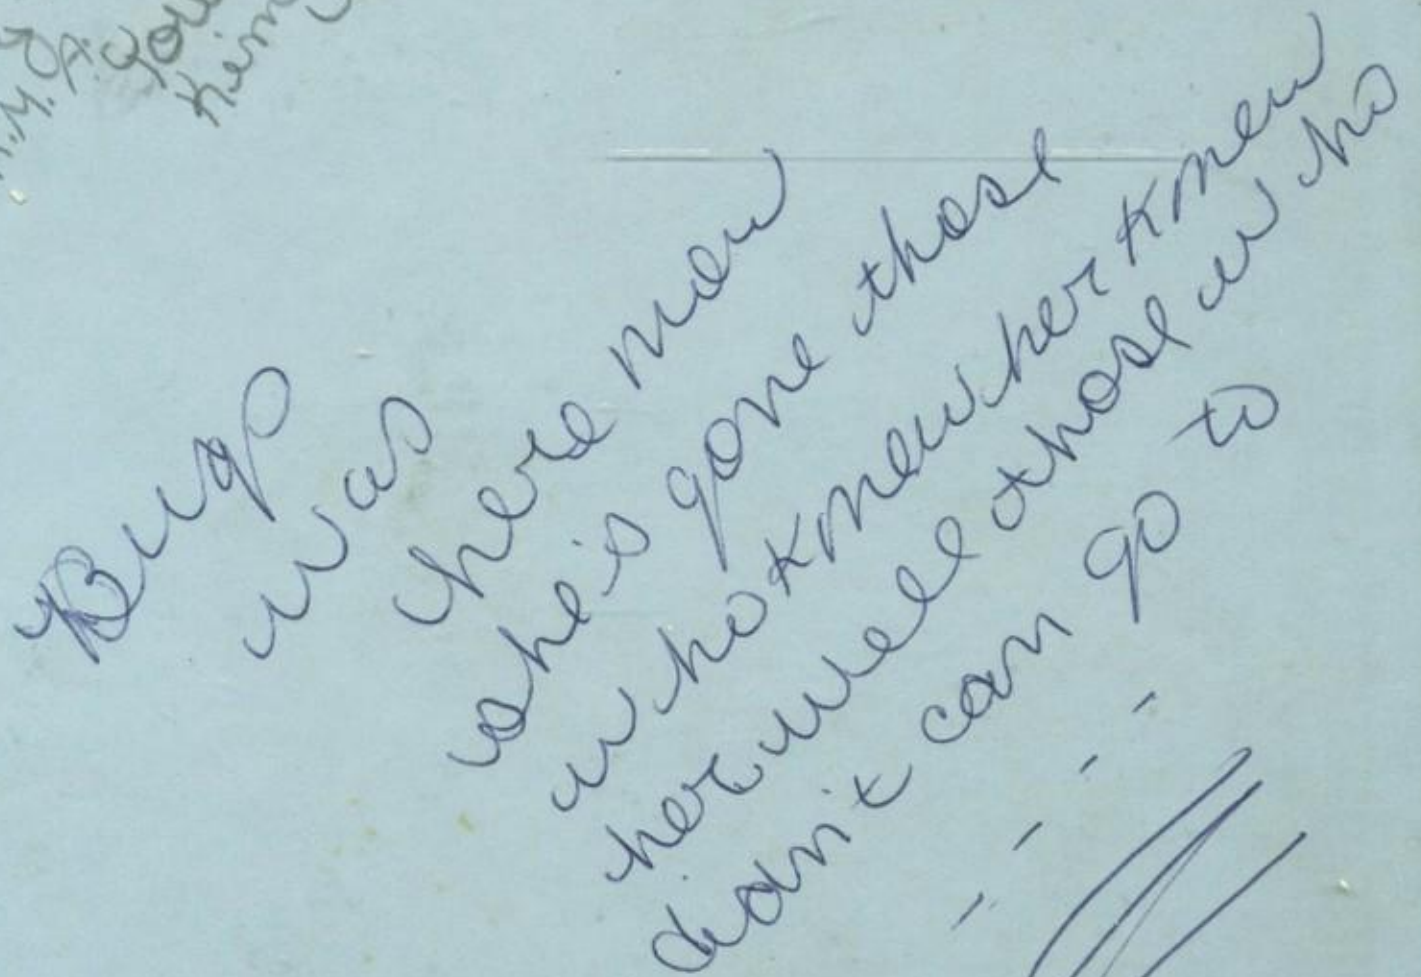 Bugs
was
here now
she's gone those
who knew her knew
her well those who
didn't can go to
- - - -